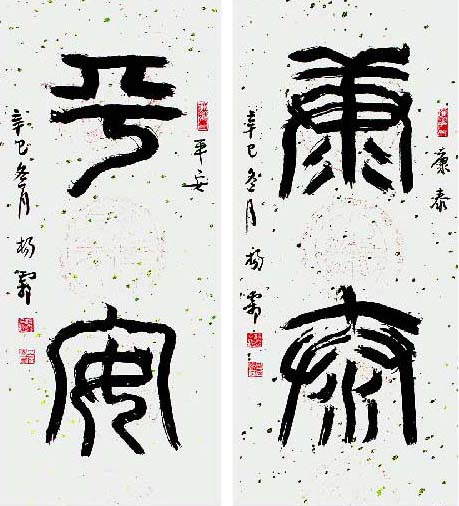 康泰
康泰
辛巳冬月
平安
平安
辛巳冬月